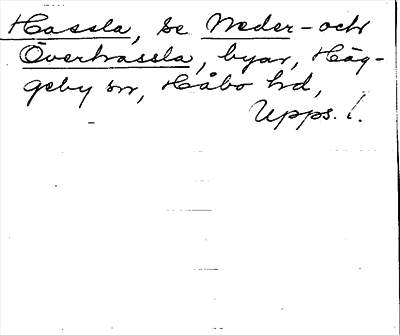 Hassla, se Neder- och
Överhassla, byar, Häg-
geby sn, Håbo hd,
Upps. l.